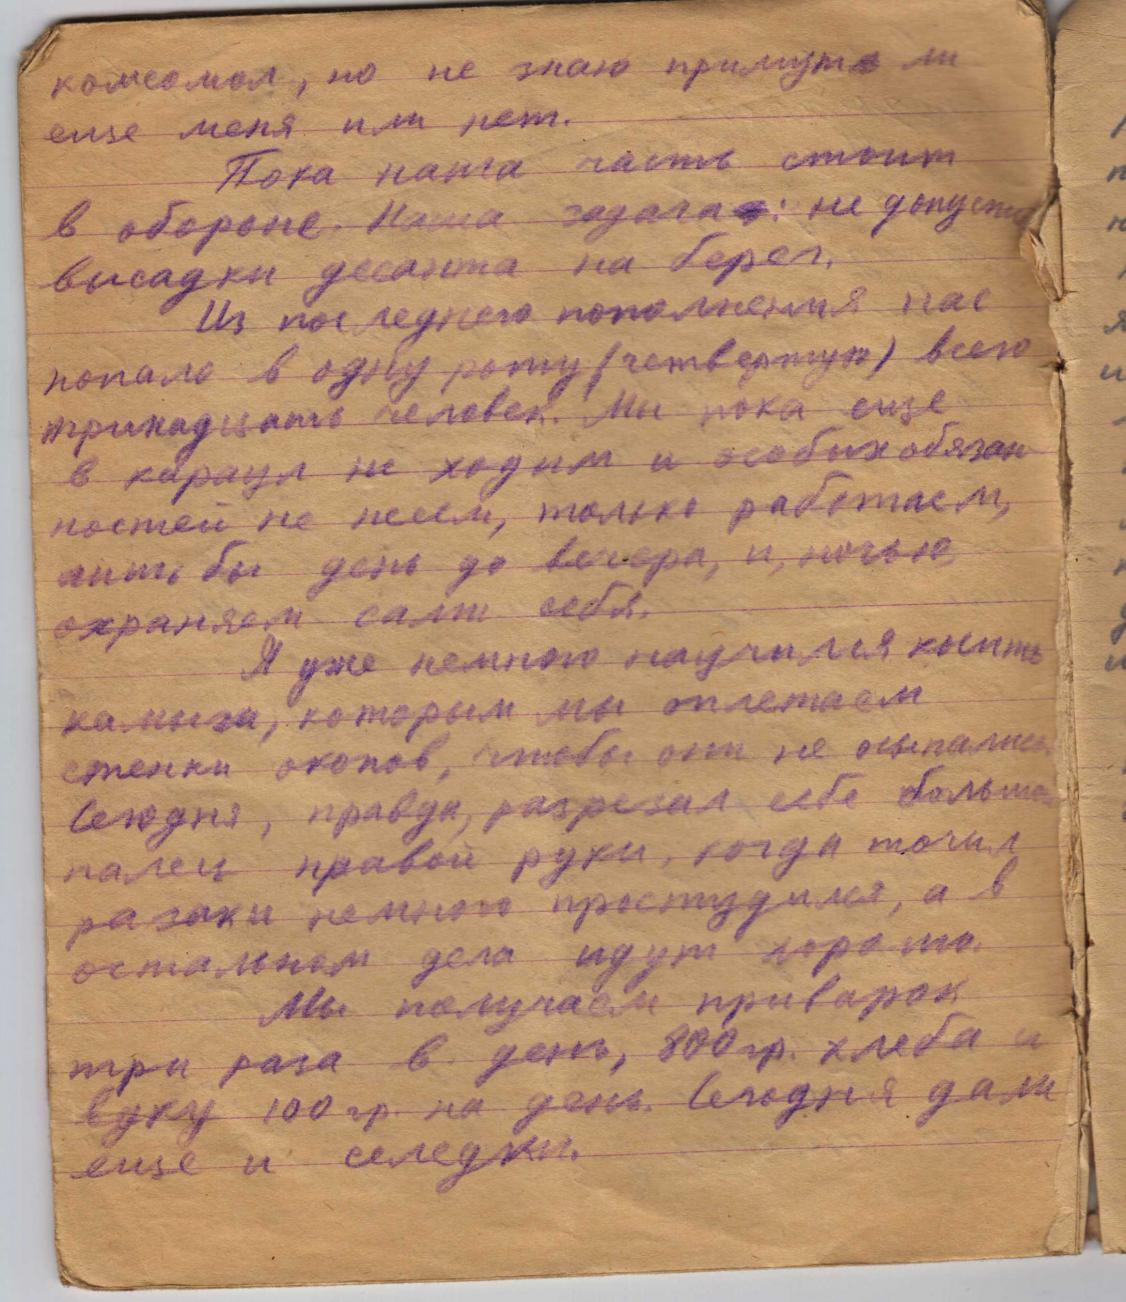 комсомол, но не знаю примут ли
еще меня или нет.
Пока наша часть стоит
в обороне. Наша задача: не допустить
высадки десанта на берег.
Из последнего пополнения нас
попало в одну роту (четвертую) всего
тринадцать человек. Мы пока еще
в караул не ходим и особых обязан
ностей не несем, только работаем,
лишь бы день до вечера, и, ночью,
охраняем сами себя.
Я уже немного научился
камыша, которым мы оплетаем
стенки окопов, чтобы они не осыпались.
Сегодня, правда, разрезал себе большой
палец правой руки, когда точил
немного простудился, а в
остальном дела идут хорошо.
Мы получаем приварок
три раза в день, 800 гр. хлеба и
100 гр. на день. Сегодня дали
еще и селедки.